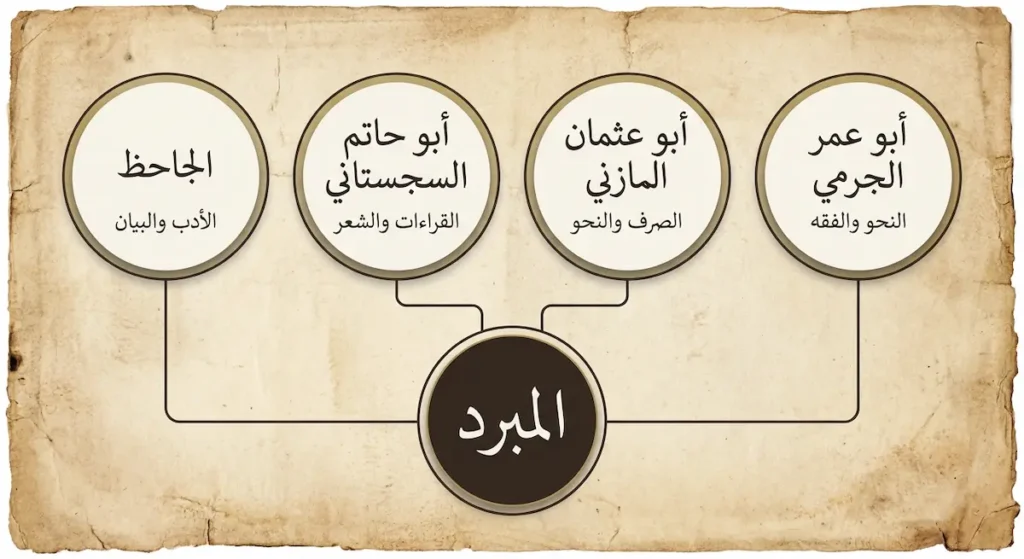 أبو عمر
الجرمي
النحو والفقه
أبو عثمان
المازني
الصرف والنحو
أبو حاتم
السجستاني
القراءات والشعر
الجاحظ
الأدب والبيان
المبرد